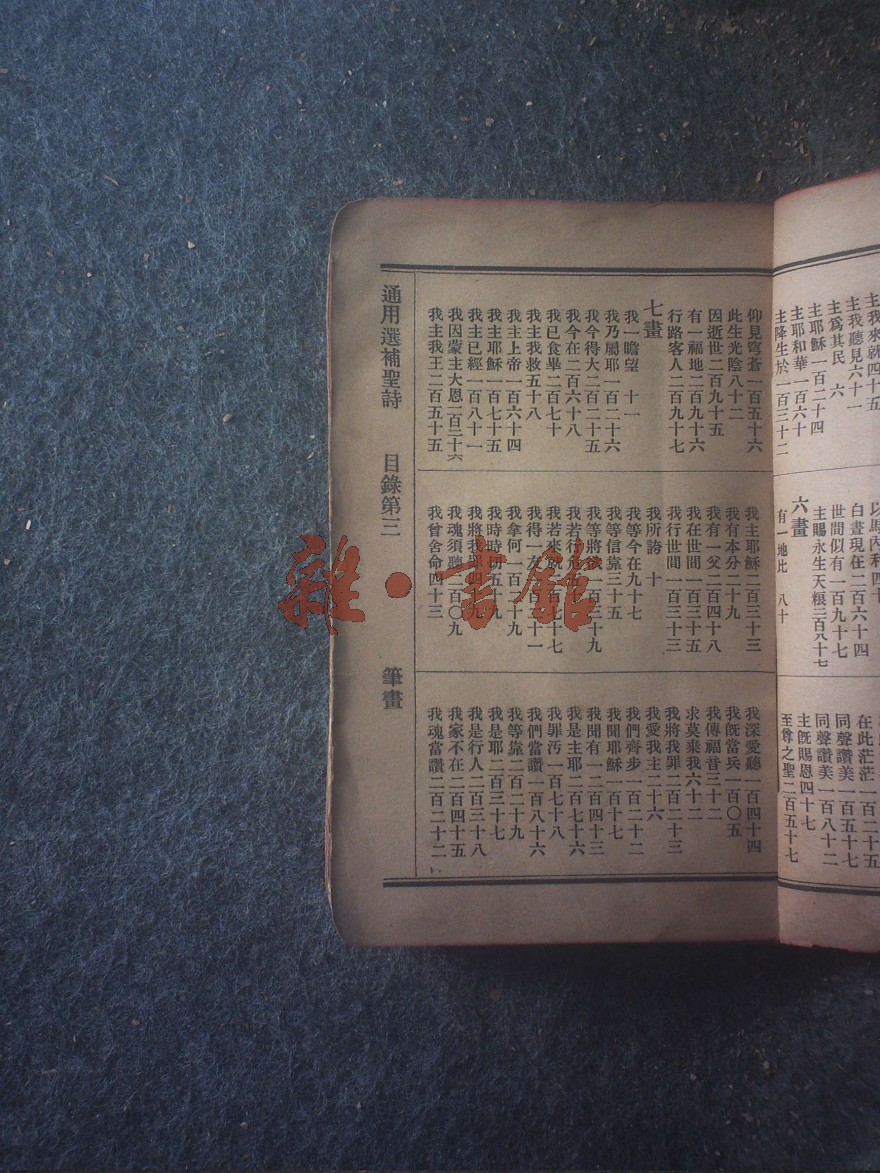 主我來就四十五
主我聽見六十一
主爲其民 六
主耶穌一百二十四
主耶和華一百六十
主降生於一百三十二
以馬內利四十
白晝現在二百六十四
世間似有一百九十七
主賜永生天糧二百八十七
六畫
有一地比 八十
在此茫茫一百二十五
同聲讚美一百五十七
同聲讚美一百八十二
主旣賜恩四十七
至尊之聖二百五十七
仰見穹蒼一百五十六
此生光陰八十二
因逝世二百九十五
有一福地二百九十六
行路客人二百九十七
七畫
我一瞻望 十一
我乃屬耶一百二十六
我今得大二百二十五
我今在二百六十八
我已食畢二百七十
我主我救五十八
我主上帝一百六十四
我主耶穌一百七十五
我主已經一百八十一
我因蒙主大恩一百三十六
我主我王二百五十五
我主耶穌二百三十三
我有本分二十九
我有一父二百四十八
我在世間一百三十五
我行世間一百三十三
我所誇 十
我等今在九十七
我等信靠三十五
我等將欲一百三十九
我若行
我若來就一百九十七
我得一友二百三十一
我拿何一百十九
我時時切五十九
我將我罪四十九
我魂須聽二百〇九
我曾舍命四十三
我深愛聽一百四十四
我旣當兵一百〇五
我傳福音三十二
求莫棄我六十二
我將我罪二百二十三
我愛我主二十六
我們齊步一百二十二
我聞耶穌一百十七
我聞有一二百四十三
我是主耶二百七十六
我罪污一百七十八
我們當讚一百八十六
我等靠二百二十九
我是耶二百三十七
我是行人二百三十八
我家不在二百四十五
我魂當讚二百二十二
通用選補聖詩 目錄第三 筆畫
雜·書館